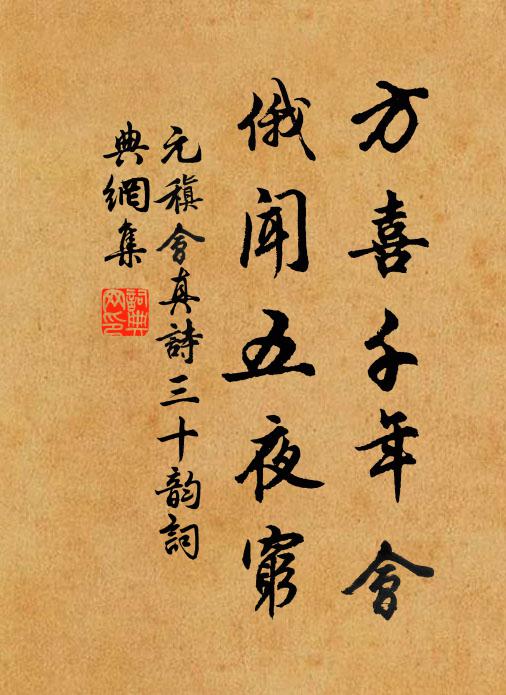 方喜千年會
俄聞五夜窮
元稹會真詩三十韵詞
典網集
詞典網印